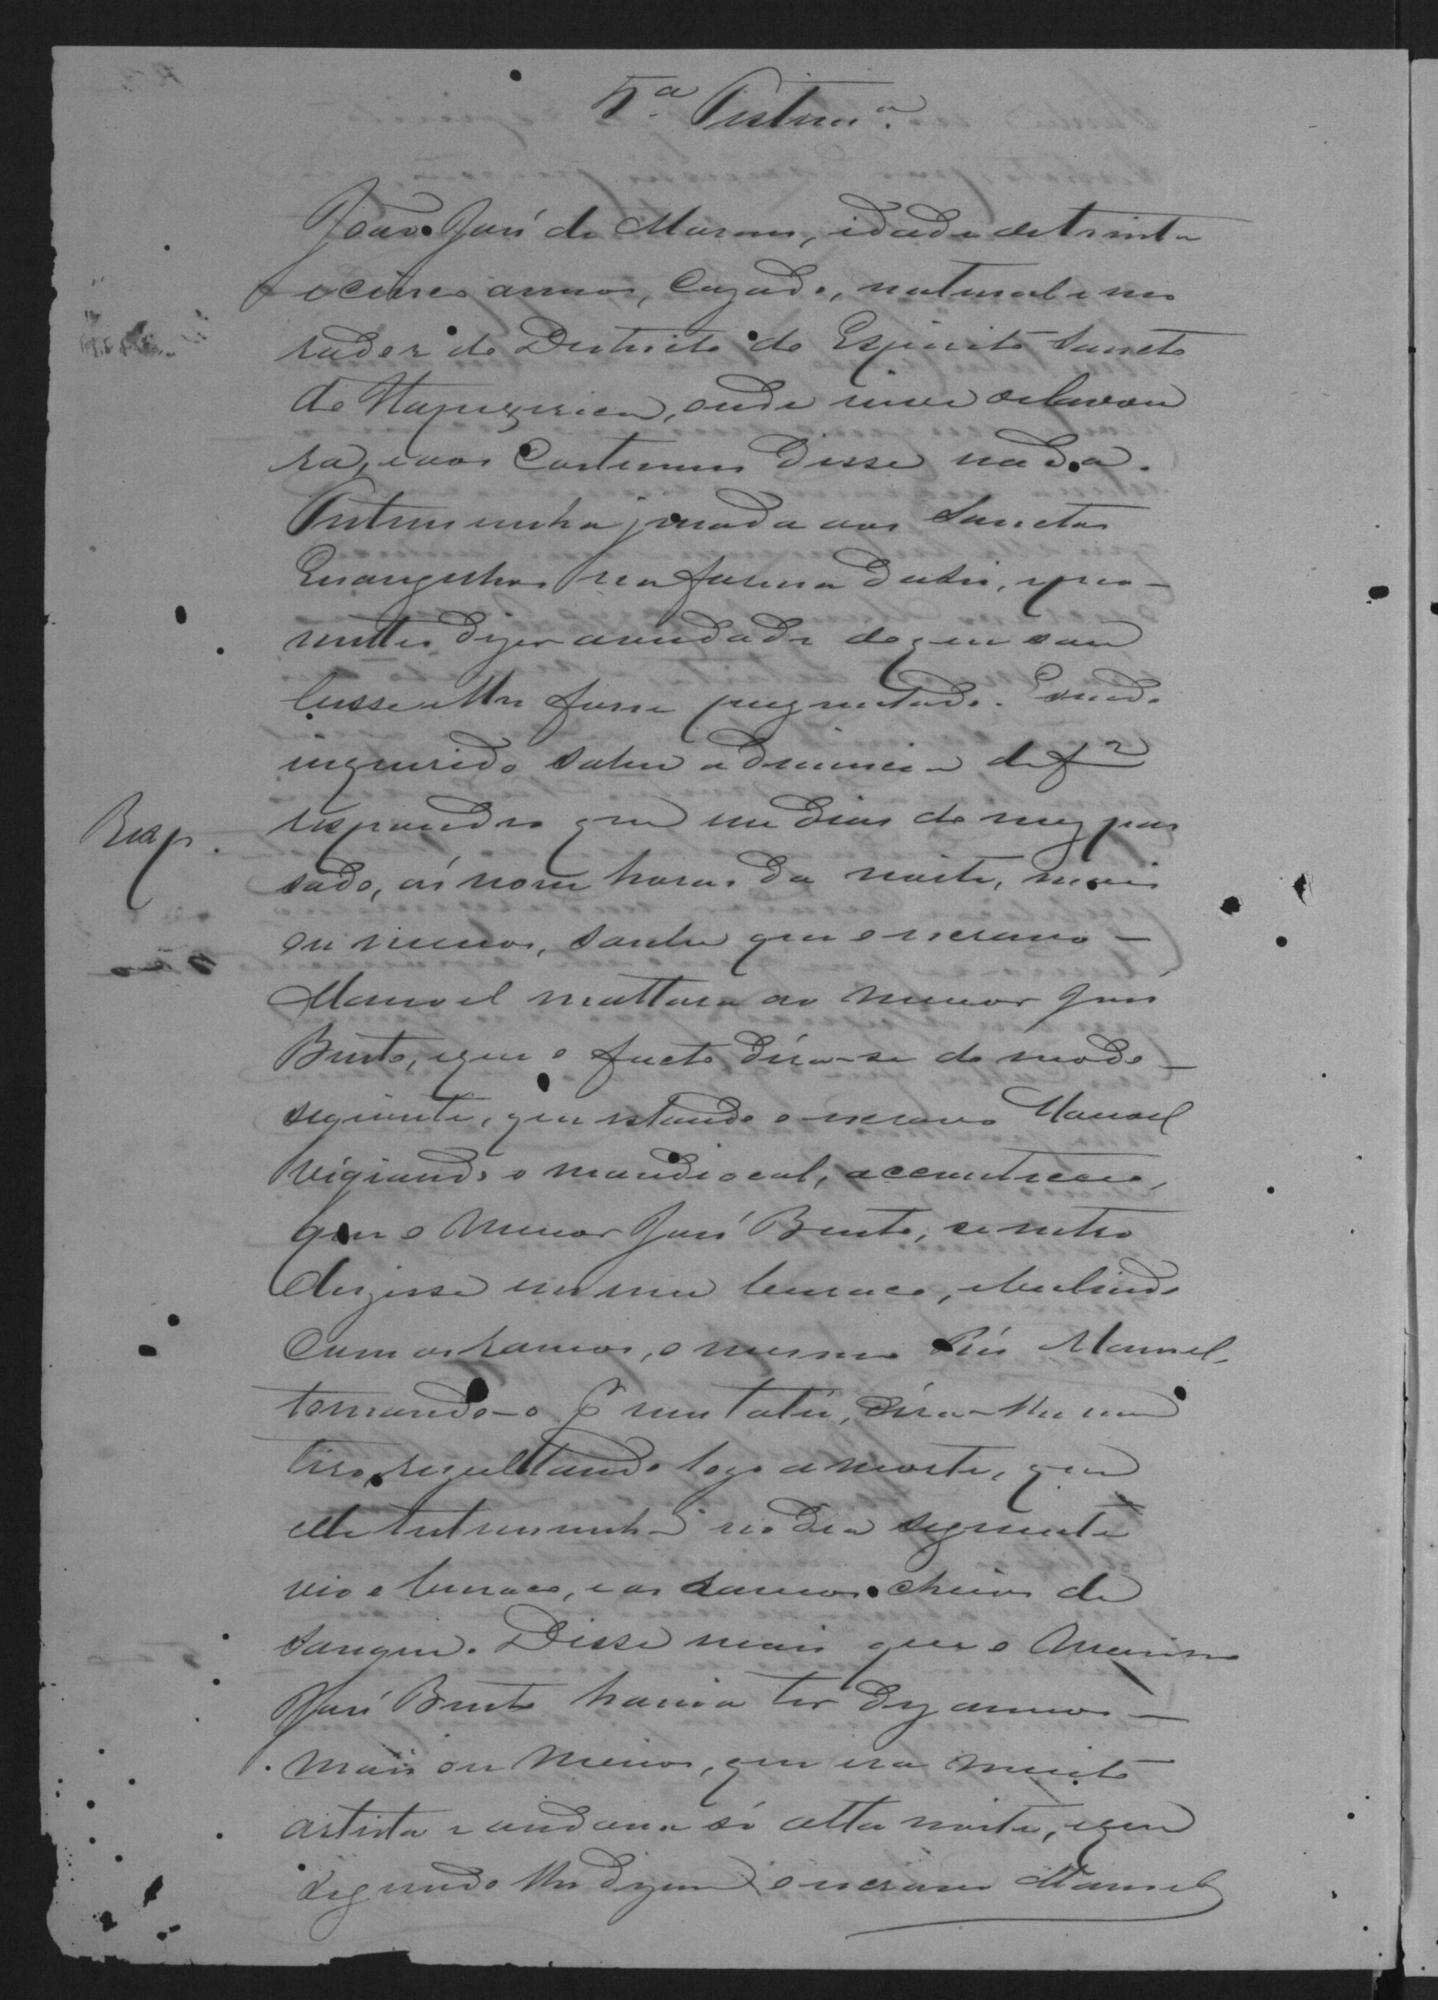 5.ª Testem.ª
João José de Moraes, idade de trinta
e cinco annos, cazado, natural e mo
rador do Districto do Espirito Sancto
de Itapecerica, onde vive de lavou
ra, e aos costumes disse nada.
Testemunha jurada aos Sanctos
Evangelhos na forma da lei, e pro-
metteu dizer a verdade do que sou
besse e lhe fosse preguntado. E sendo
inquerido sobre a denuncia de f 2
Resp.
respondeo que em dias do mez pas
sado, ás nove horas da noite, mais
ou menos, soube que o escravo
Manoel mattara ao menor José
Bento, e que o facto déra-se do modo
seguinte, que estando o escravo Manoel
vigiando o mandiocal, acconteceo
que o menor José Bento, se
em um buraco, e bulindo
com os ramos, o mesmo réo Manoel
tomando-o p.r um tatú, déra-lhe um
tiro, rezultando logo a morte, que
elle testemunha no dia seguinte
vio o buraco, e os ramos cheios de
sangue. Disse mais que o menino
José Bento havia ter dez annos
mais ou menos, que era muito
artista e andava só alta noite, e que
segundo lhe dizem o escravo Manoel